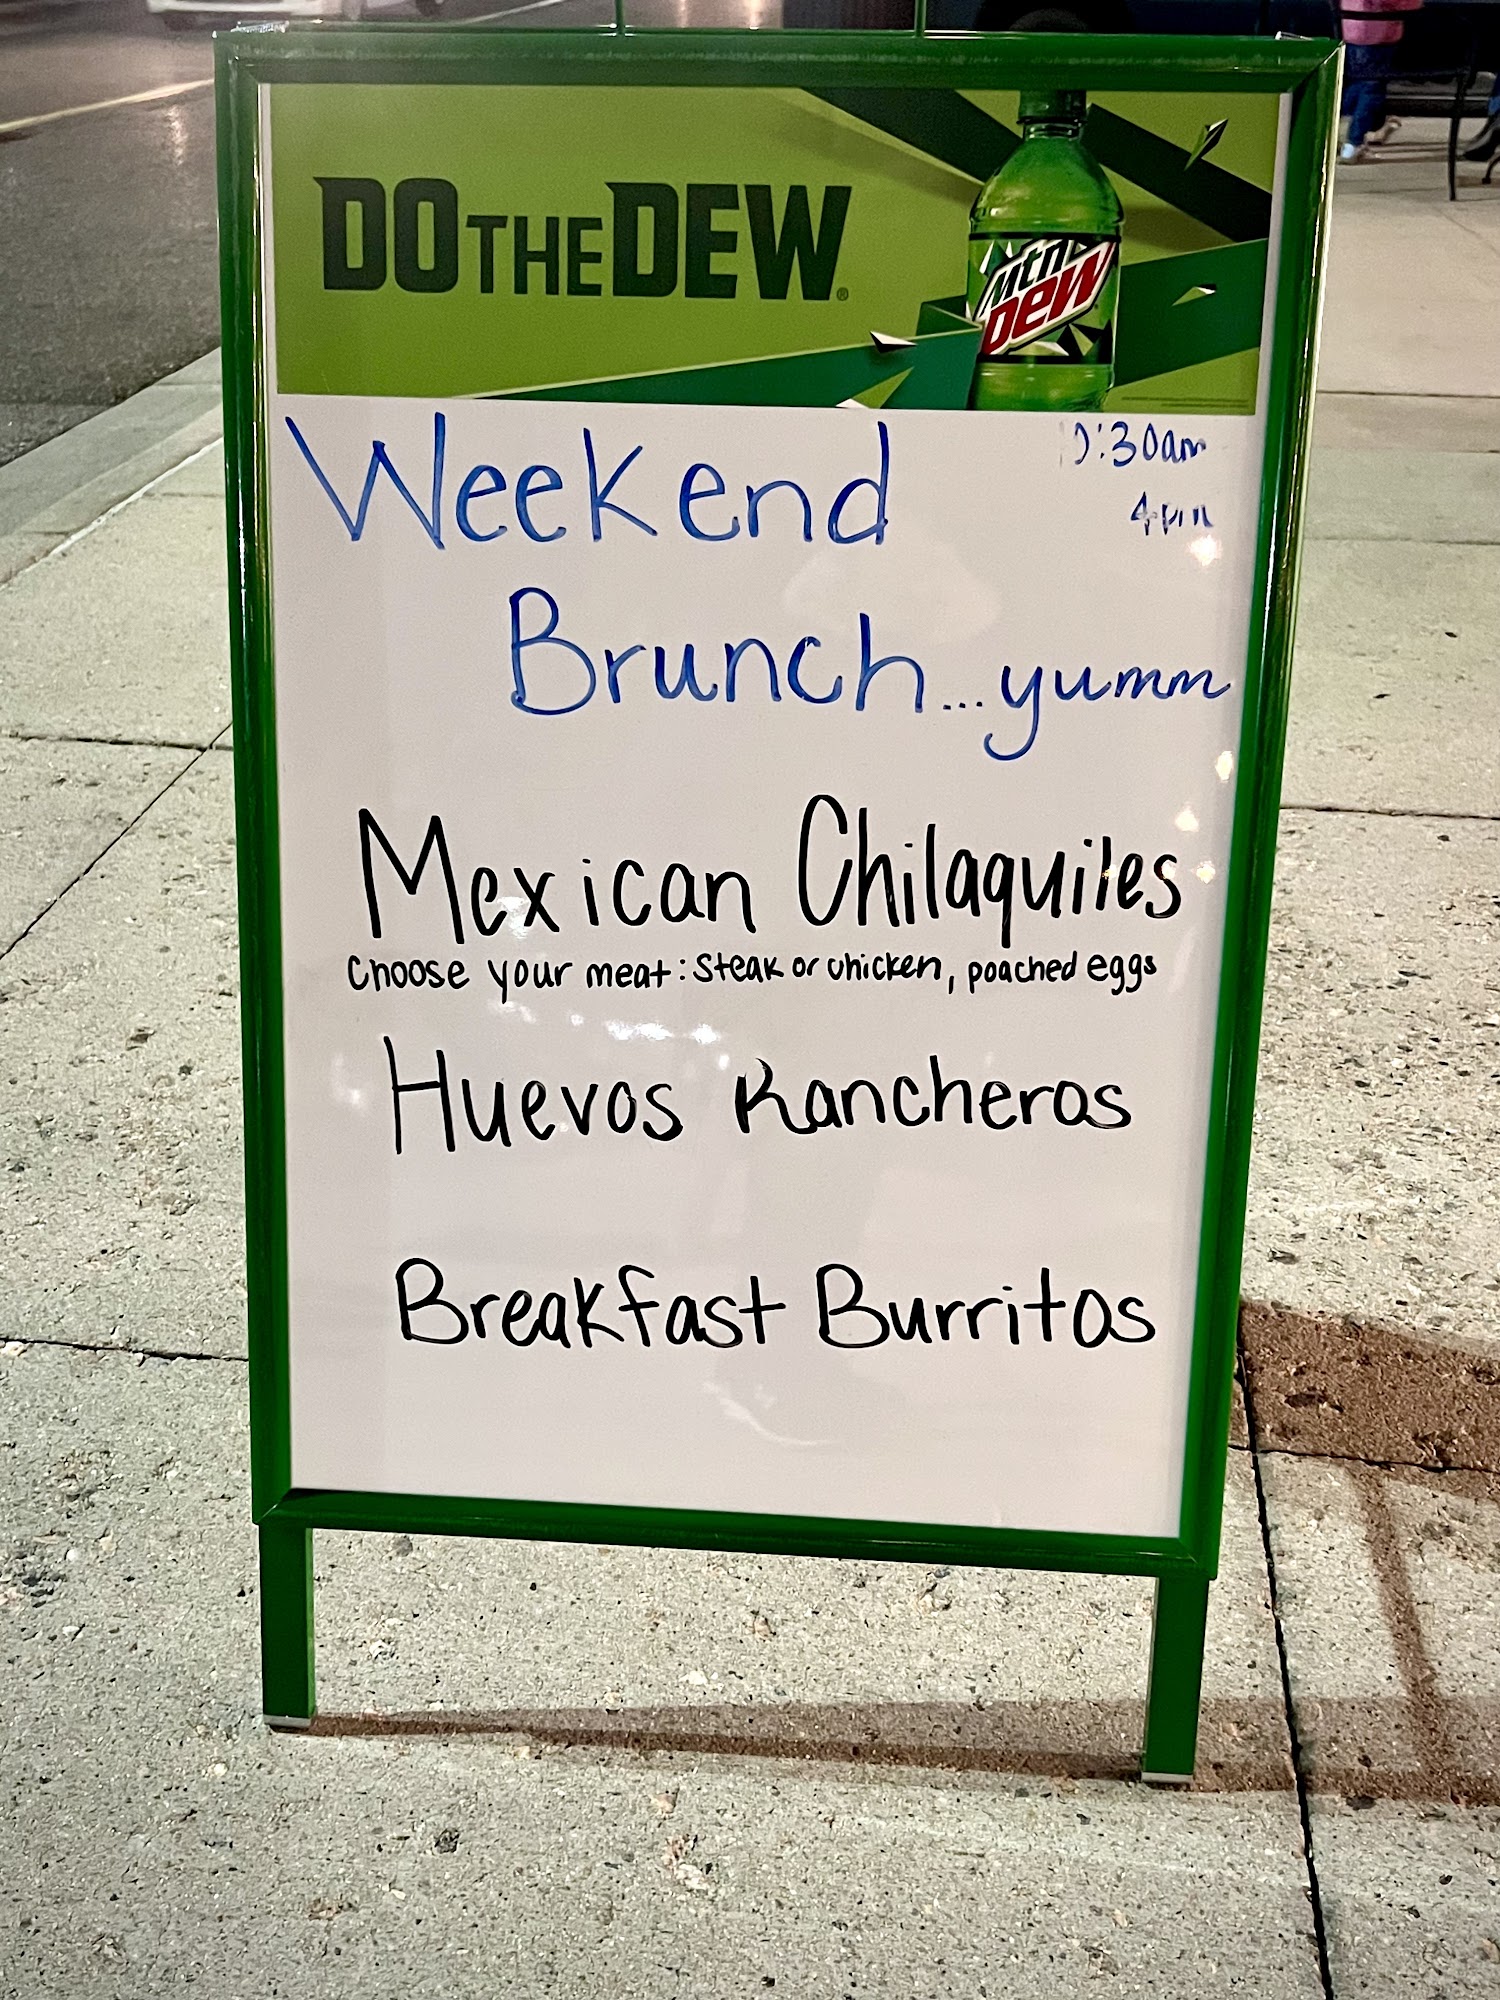 DO THE DEW
mtn
DEW
Weekend
:30am
4pm
Brunch...yumm
Mexican Chilaquiles
Choose your meat: steak or chicken, poached eggs
Huevos Rancheros
Breakfast Burritos